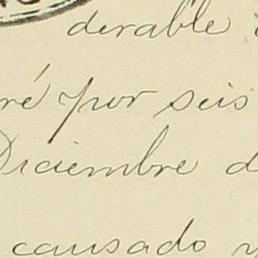 derable
ré por seis
Diciembre d
causado y